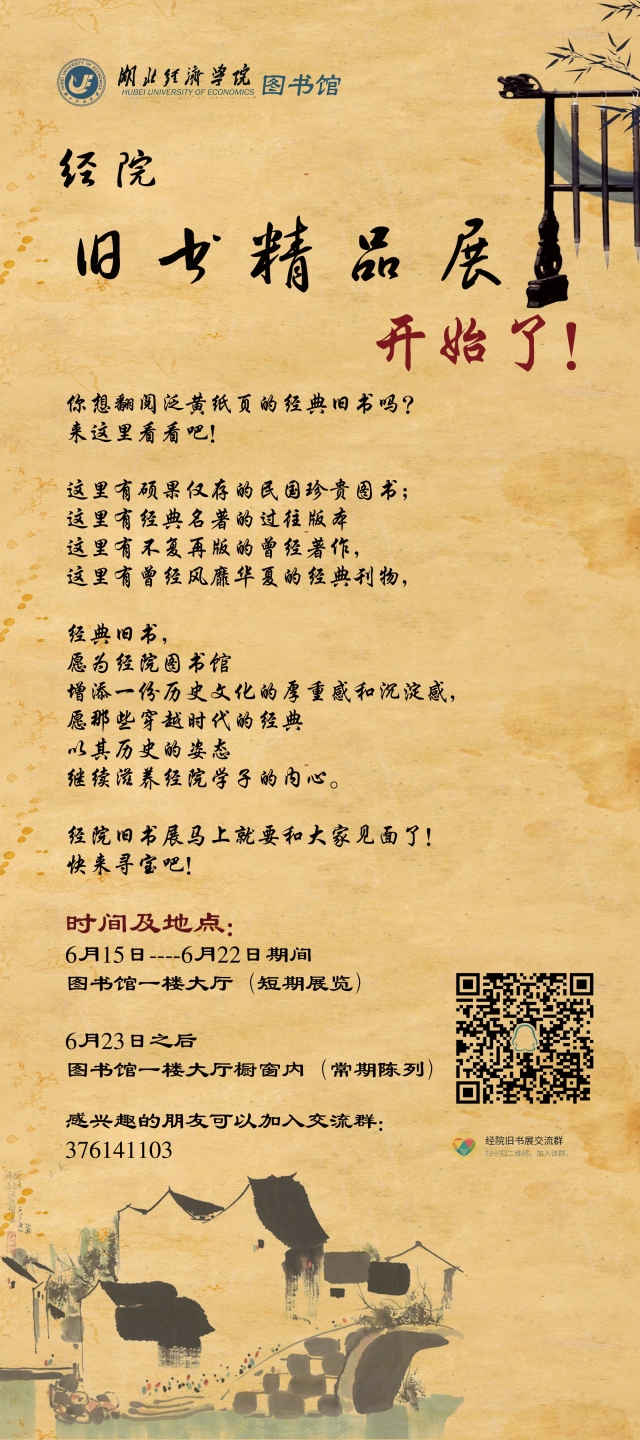 湖北经济学院 图书馆
HUBEI UNIVERSITY OF ECONOMICS
经院
旧书精品展
开始了!
你想翻阅泛黄纸页的经典旧书吗?
来这里看看吧!
这里有硕果仅存的民国珍贵图书;
这里有经典名著的过往版本
这里有不复再版的曾经著作,
这里有曾经风靡华夏的经典刊物,
经典旧书,
愿为经院图书馆
增添一份历史文化的厚重感和沉淀感,
愿那些穿越时代的经典
以其历史的姿态
继续滋养经院学子的内心。
经院旧书展马上就要和大家见面了!
快来寻宝吧!
时间及地点:
6月15日----6月22日期间
图书馆一楼大厅(短期展览)
6月23日之后
图书馆一楼大厅橱窗内(常期陈列)
感兴趣的朋友可以加入交流群:
376141103
经院旧书展交流群
扫一扫二维码,加入该群。